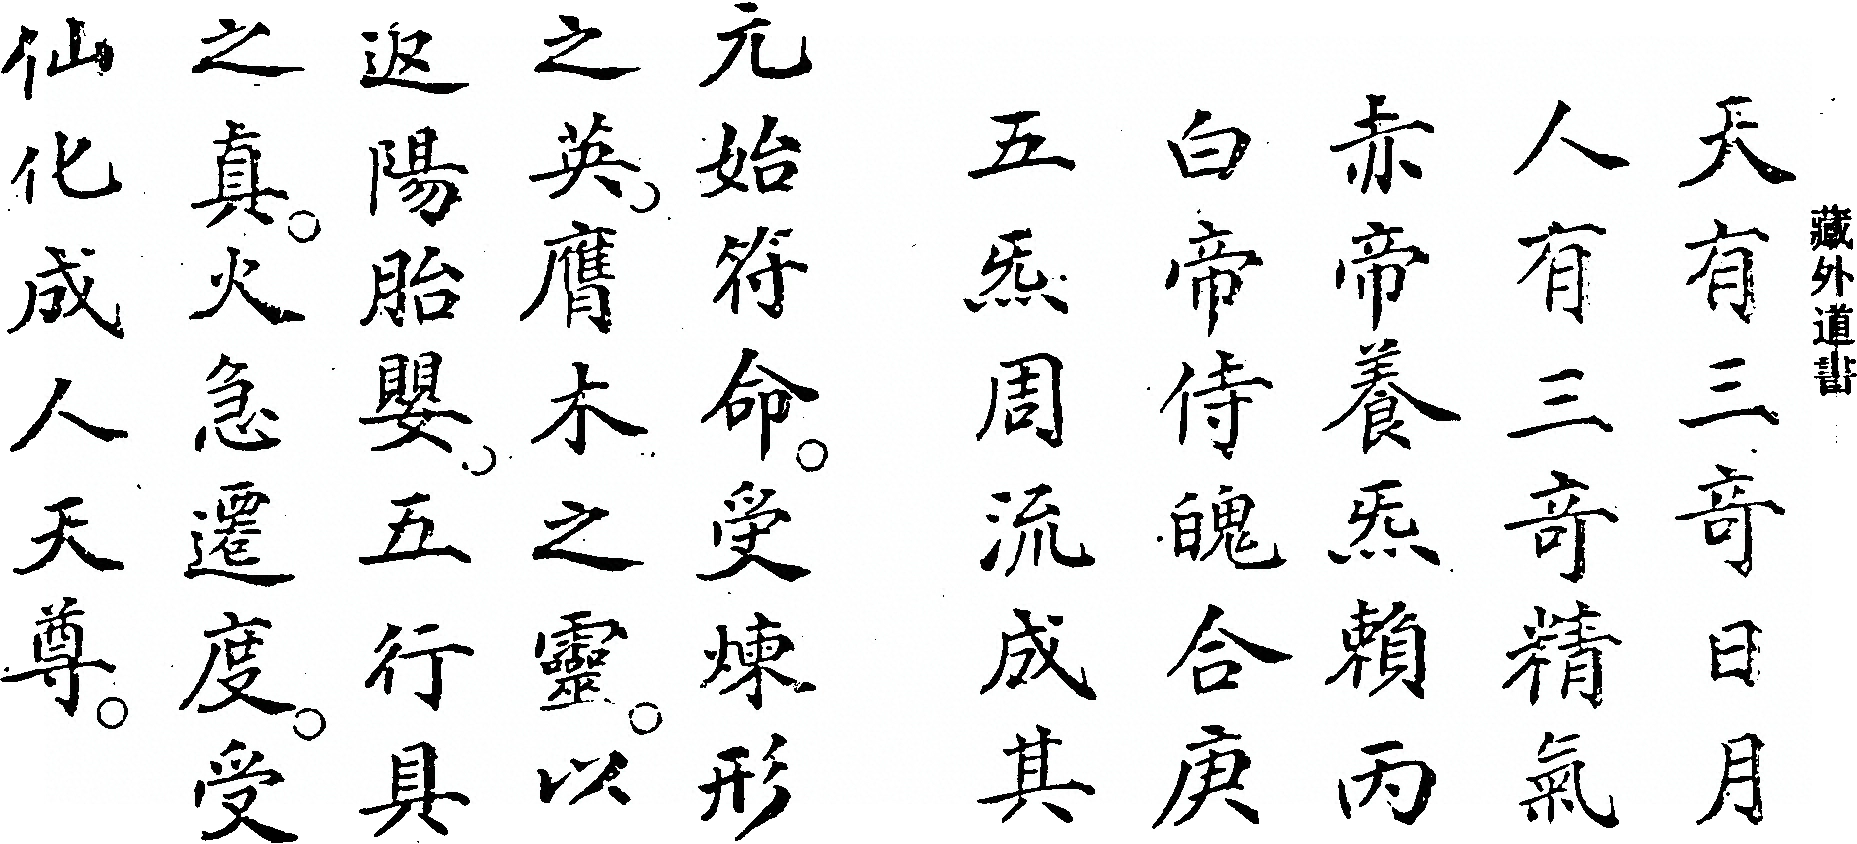 藏外道書
天有三奇日月
人有三奇精氣
赤帝養炁賴丙
白帝侍魄合庚
五炁周流成其
元始符命。受煉形
之英。膺木之靈。以
返陽胎嬰。五行具
之真。火急遷度。受
仙化成人天尊。